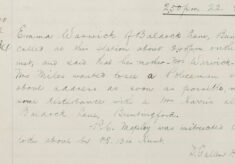 2.50pm 22.
Emma Warwick of Baldock Lane, Bun
called at this station about 2.40pm on the
inst, and said that her mother Mrs Warwick
Mrs Miles wanted to see a Policeman
above address as soon as possible,
some disturbance with a Mr Harris
Baldock Lane, Buntingford.
P.C. was instructed